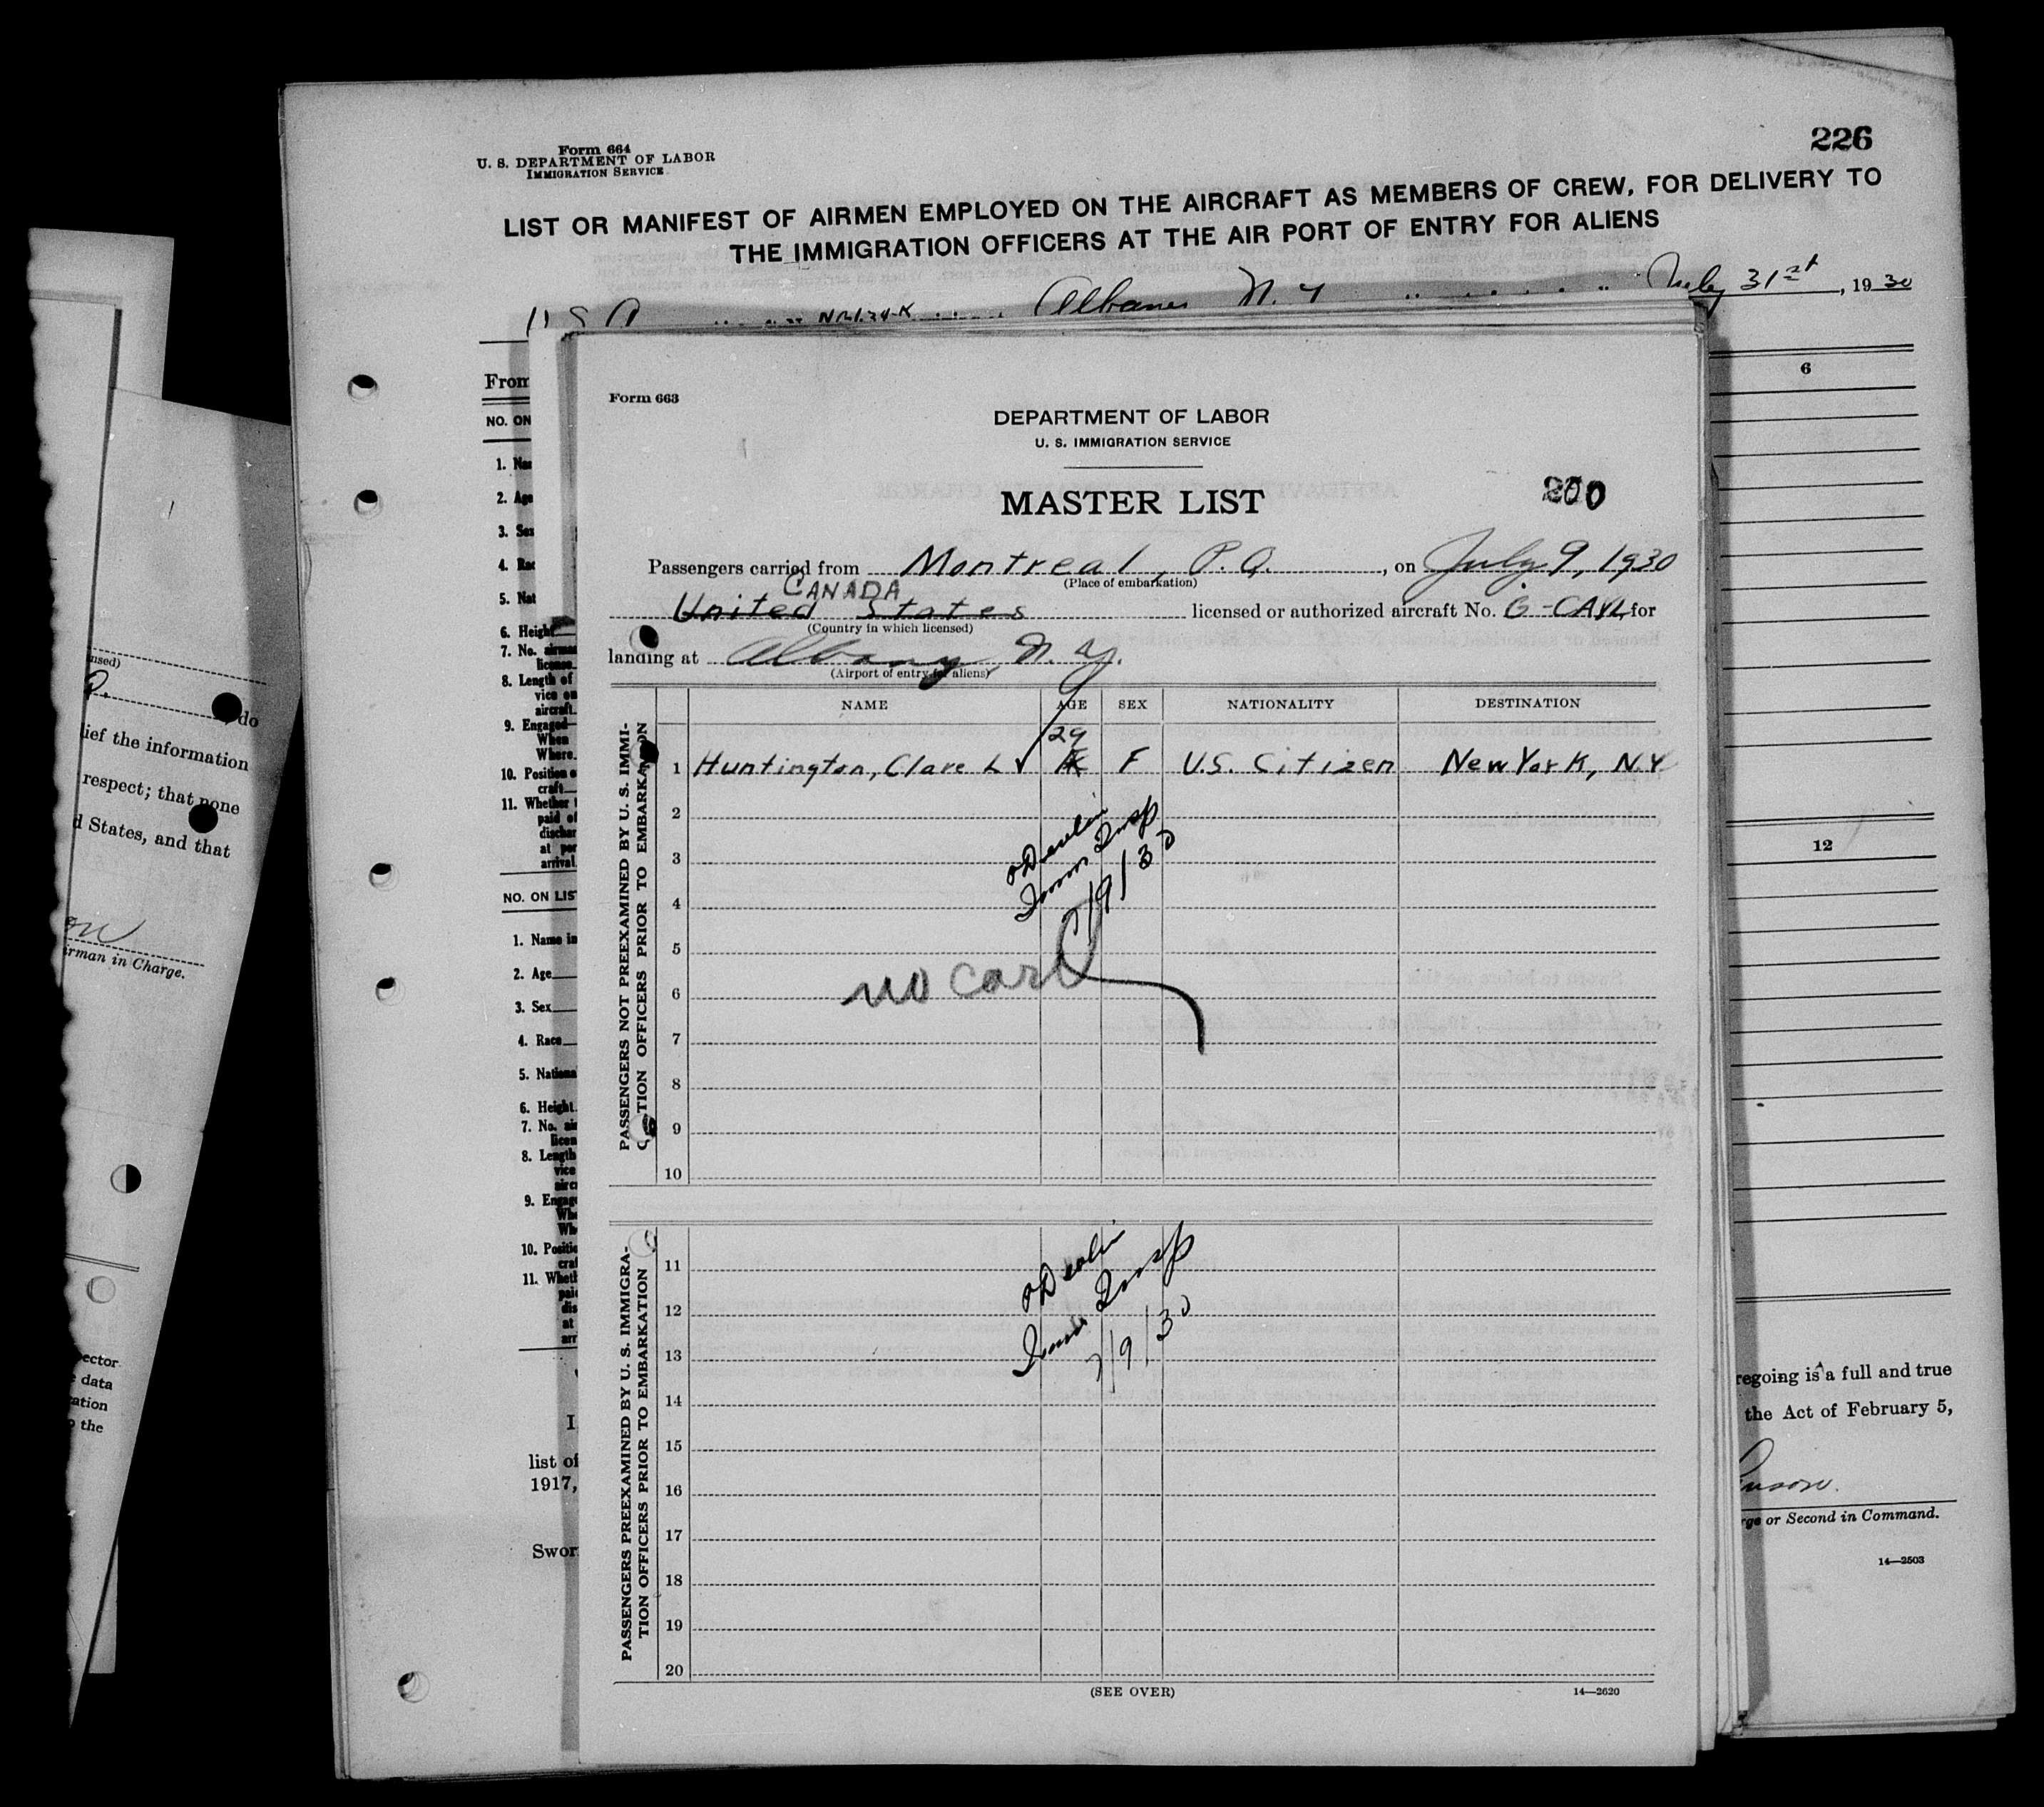 226
Form 664
U. S. DEPARTMENT OF LABOR
IMMIGRATION SERVICE
LIST OR MANIFEST OF AIRMEN EMPLOYED ON THE AIRCRAFT AS MEMBERS OF CREW, FOR DELIVERY TO
THE IMMIGRATION OFFICERS AT THE AIR PORT OF ENTRY FOR ALIENS
Albany N. Y July 31st, 1930
From
6
NO. ON
1.
2. Age
3. Sex
4.
5. Nat
6. Height
7. No.
8. Length of
vice on
aircraft.
9. Engaged
When
Where
10. Position
craft
11. Whether
paid
at
arrival
12
NO. ON LIS
1. Name in
2. Age
3. Sex
4. Race
5. Nationa
6. Height
7. No.
8. Length
vice
9.
10.
11.
I
list of
1917,
Swor
regoing is a full and true
the Act of February 5,
rge or Second in Command.
14—2503
nsed)
do
lief the information
respect; that none
d States, and that
irman in Charge.
ector
data
ation
the
Form 663
DEPARTMENT OF LABOR
U. S. IMMIGRATION SERVICE
MASTER LIST
200
Passengers carried from Montreal, P.Q., on July 9, 1930
(Place of embarkation)
CANADA
United States licensed or authorized aircraft No. G-CAYL, for
(Country in which licensed)
landing at Albany N.Y.
(Airport of entry for aliens)
NAME AGE SEX NATIONALITY DESTINATION
PASSENGERS NOT PREEXAMINED BY U. S. IMMI-
GRATION OFFICERS PRIOR TO EMBARKATION
29
1 Huntington, Clare L F U.S. Citizen New York, N.Y.
2
3
4
5
6
7
8
9
10
Devlin
Imm Insp
7/9/30
no card
PASSENGERS PREEXAMINED BY U. S. IMMIGRA-
TION OFFICERS PRIOR TO EMBARKATION
11
12
13
14
15
16
17
18
19
20
Devlin
Imm Insp
7/9/30
(SEE OVER)
14—2620